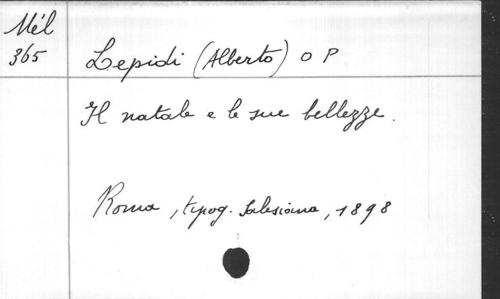 Mél
365
Lepidi (Alberto) O P
Il natale e le sue bellezze.
Roma, tipog. Salesiana, 1898